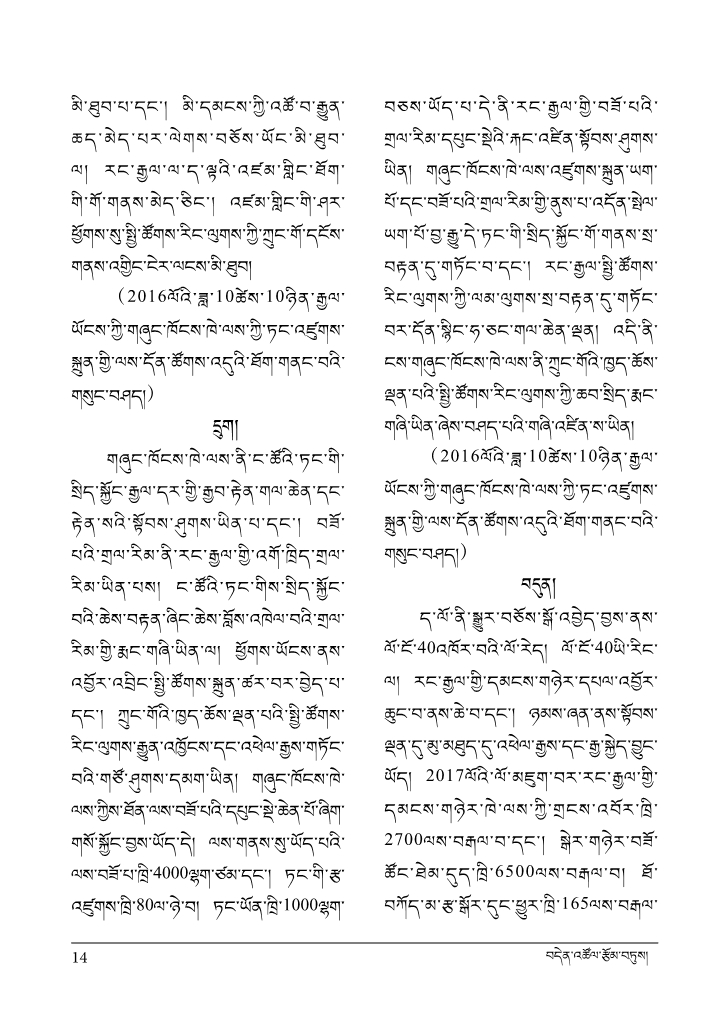 མི་ཐུབ་པ་དང་། མི་དམངས་ཀྱི་འཚོ་བ་རྒྱུན་
ཆད་མེད་པར་ལེགས་བཅོས་ཡོང་མི་ཐུབ་
ལ། རང་རྒྱལ་ལ་ད་ལྟའི་འཛམ་གླིང་ཐོག་
གི་གོ་གནས་མེད་ཅིང་། འཛམ་གླིང་གི་ཤར་
ཕྱོགས་སུ་སྤྱི་ཚོགས་རིང་ལུགས་ཀྱི་ཀྲུང་གོ་དངོས་
གནས་འགྱིང་ངེར་ལངས་མི་ཐུབ།
(2016ལོའི་ཟླ་10ཚེས་10ཉིན་རྒྱལ་
ཡོངས་ཀྱི་གཞུང་ཁོངས་ཁེ་ལས་ཀྱི་ཏང་འཛུགས་
སྐྲུན་གྱི་ལས་དོན་ཚོགས་འདུའི་ཐོག་གནང་བའི་
གསུང་བཤད།)
དྲུག།
གཞུང་ཁོངས་ཁེ་ལས་ནི་ང་ཚོའི་ཏང་གི་
སྲིད་སྐྱོང་རྒྱལ་དར་གྱི་རྒྱབ་རྟེན་གལ་ཆེན་དང་
རྟེན་སའི་སྟོབས་ཤུགས་ཡིན་པ་དང་། བཟོ་
པའི་གྲལ་རིམ་ནི་རང་རྒྱལ་གྱི་འགོ་ཁྲིད་གྲལ་
རིམ་ཡིན་པས། ང་ཚོའི་ཏང་གིས་སྲིད་སྐྱོང་
བའི་ཆེས་བརྟན་ཞིང་ཆེས་བློས་འཁེལ་བའི་གྲལ་
རིམ་གྱི་རྨང་གཞི་ཡིན་ལ། ཕྱོགས་ཡོངས་ནས་
འབྱོར་འབྲིང་སྤྱི་ཚོགས་སྐྲུན་ཚར་བར་བྱེད་པ་
དང་། ཀྲུང་གོའི་ཁྱད་ཆོས་ལྡན་པའི་སྤྱི་ཚོགས་
རིང་ལུགས་རྒྱུན་འཁྱོངས་དང་འཕེལ་རྒྱས་གཏོང་
བའི་གཙོ་ཤུགས་དམག་ཡིན། གཞུང་ཁོངས་ཁེ་
ལས་ཀྱིས་ཐོན་ལས་བཟོ་པའི་དཔུང་སྡེ་ཆེན་པོ་ཞིག་
གསོ་སྐྱོང་བྱས་ཡོད་དེ། ལས་གནས་སུ་ཡོད་པའི་
ལས་བཟོ་པ་ཁྲི་4000ལྷག་ཙམ་དང་། ཏང་གི་རྩ་
འཛུགས་ཁྲི་80ལ་ཉེ་བ། ཏང་ཡོན་ཁྲི་1000ལྷག་
བཅས་ཡོད་པ་དེ་ནི་རང་རྒྱལ་གྱི་བཟོ་པའི་
གྲལ་རིམ་དཔུང་སྡེའི་རྐང་འཛིན་སྟོབས་ཤུགས་
ཡིན། གཞུང་ཁོངས་ཁེ་ལས་འཛུགས་སྐྲུན་ཡག་
པོ་དང་བཟོ་པའི་གྲལ་རིམ་གྱི་ནུས་པ་འདོན་སྤེལ་
ཡག་པོ་བྱ་རྒྱུ་དེ་ཏང་གི་སྲིད་སྐྱོང་གོ་གནས་སྲ་
བརྟན་དུ་གཏོང་བ་དང་། རང་རྒྱལ་སྤྱི་ཚོགས་
རིང་ལུགས་ཀྱི་ལམ་ལུགས་སྲ་བརྟན་དུ་གཏོང་
བར་དོན་སྙིང་ཧ་ཅང་གལ་ཆེན་ལྡན། འདི་ནི་
ངས་གཞུང་ཁོངས་ཁེ་ལས་ནི་ཀྲུང་གོའི་ཁྱད་ཆོས་
ལྡན་པའི་སྤྱི་ཚོགས་རིང་ལུགས་ཀྱི་ཆབ་སྲིད་རྨང་
གཞི་ཡིན་ཞེས་བཤད་པའི་གཞི་འཛིན་ས་ཡིན།
(2016ལོའི་ཟླ་10ཚེས་10ཉིན་རྒྱལ་
ཡོངས་ཀྱི་གཞུང་ཁོངས་ཁེ་ལས་ཀྱི་ཏང་འཛུགས་
སྐྲུན་གྱི་ལས་དོན་ཚོགས་འདུའི་ཐོག་གནང་བའི་
གསུང་བཤད།)
བདུན།
ད་ལོ་ནི་སྒྱུར་བཅོས་སྒོ་འབྱེད་བྱས་ནས་
ལོ་ངོ་40འཁོར་བའི་ལོ་རེད། ལོ་ངོ་40ཡི་རིང་
ལ། རང་རྒྱལ་གྱི་དམངས་གཉེར་དཔལ་འབྱོར་
ཆུང་བ་ནས་ཆེ་བ་དང་། ཉམས་ཞན་ནས་སྟོབས་
ལྡན་དུ་མུ་མཐུད་དུ་འཕེལ་རྒྱས་དང་རྒྱ་སྐྱེད་བྱུང་
ཡོད། 2017ལོའི་ལོ་མཇུག་བར་རང་རྒྱལ་གྱི་
དམངས་གཉེར་ཁེ་ལས་ཀྱི་གྲངས་འབོར་ཁྲི་
2700ལས་བརྒལ་བ་དང་། སྒེར་གཉེར་བཟོ་
ཚོང་ཐེམ་དུད་ཁྲི་6500ལས་བརྒལ་བ། ཐོ་
བཀོད་མ་རྩ་སྒོར་དུང་ཕྱུར་ཁྲི་165ལས་བརྒལ་
14
བདེན་འཚོལ་རྩོམ་བཏུས།